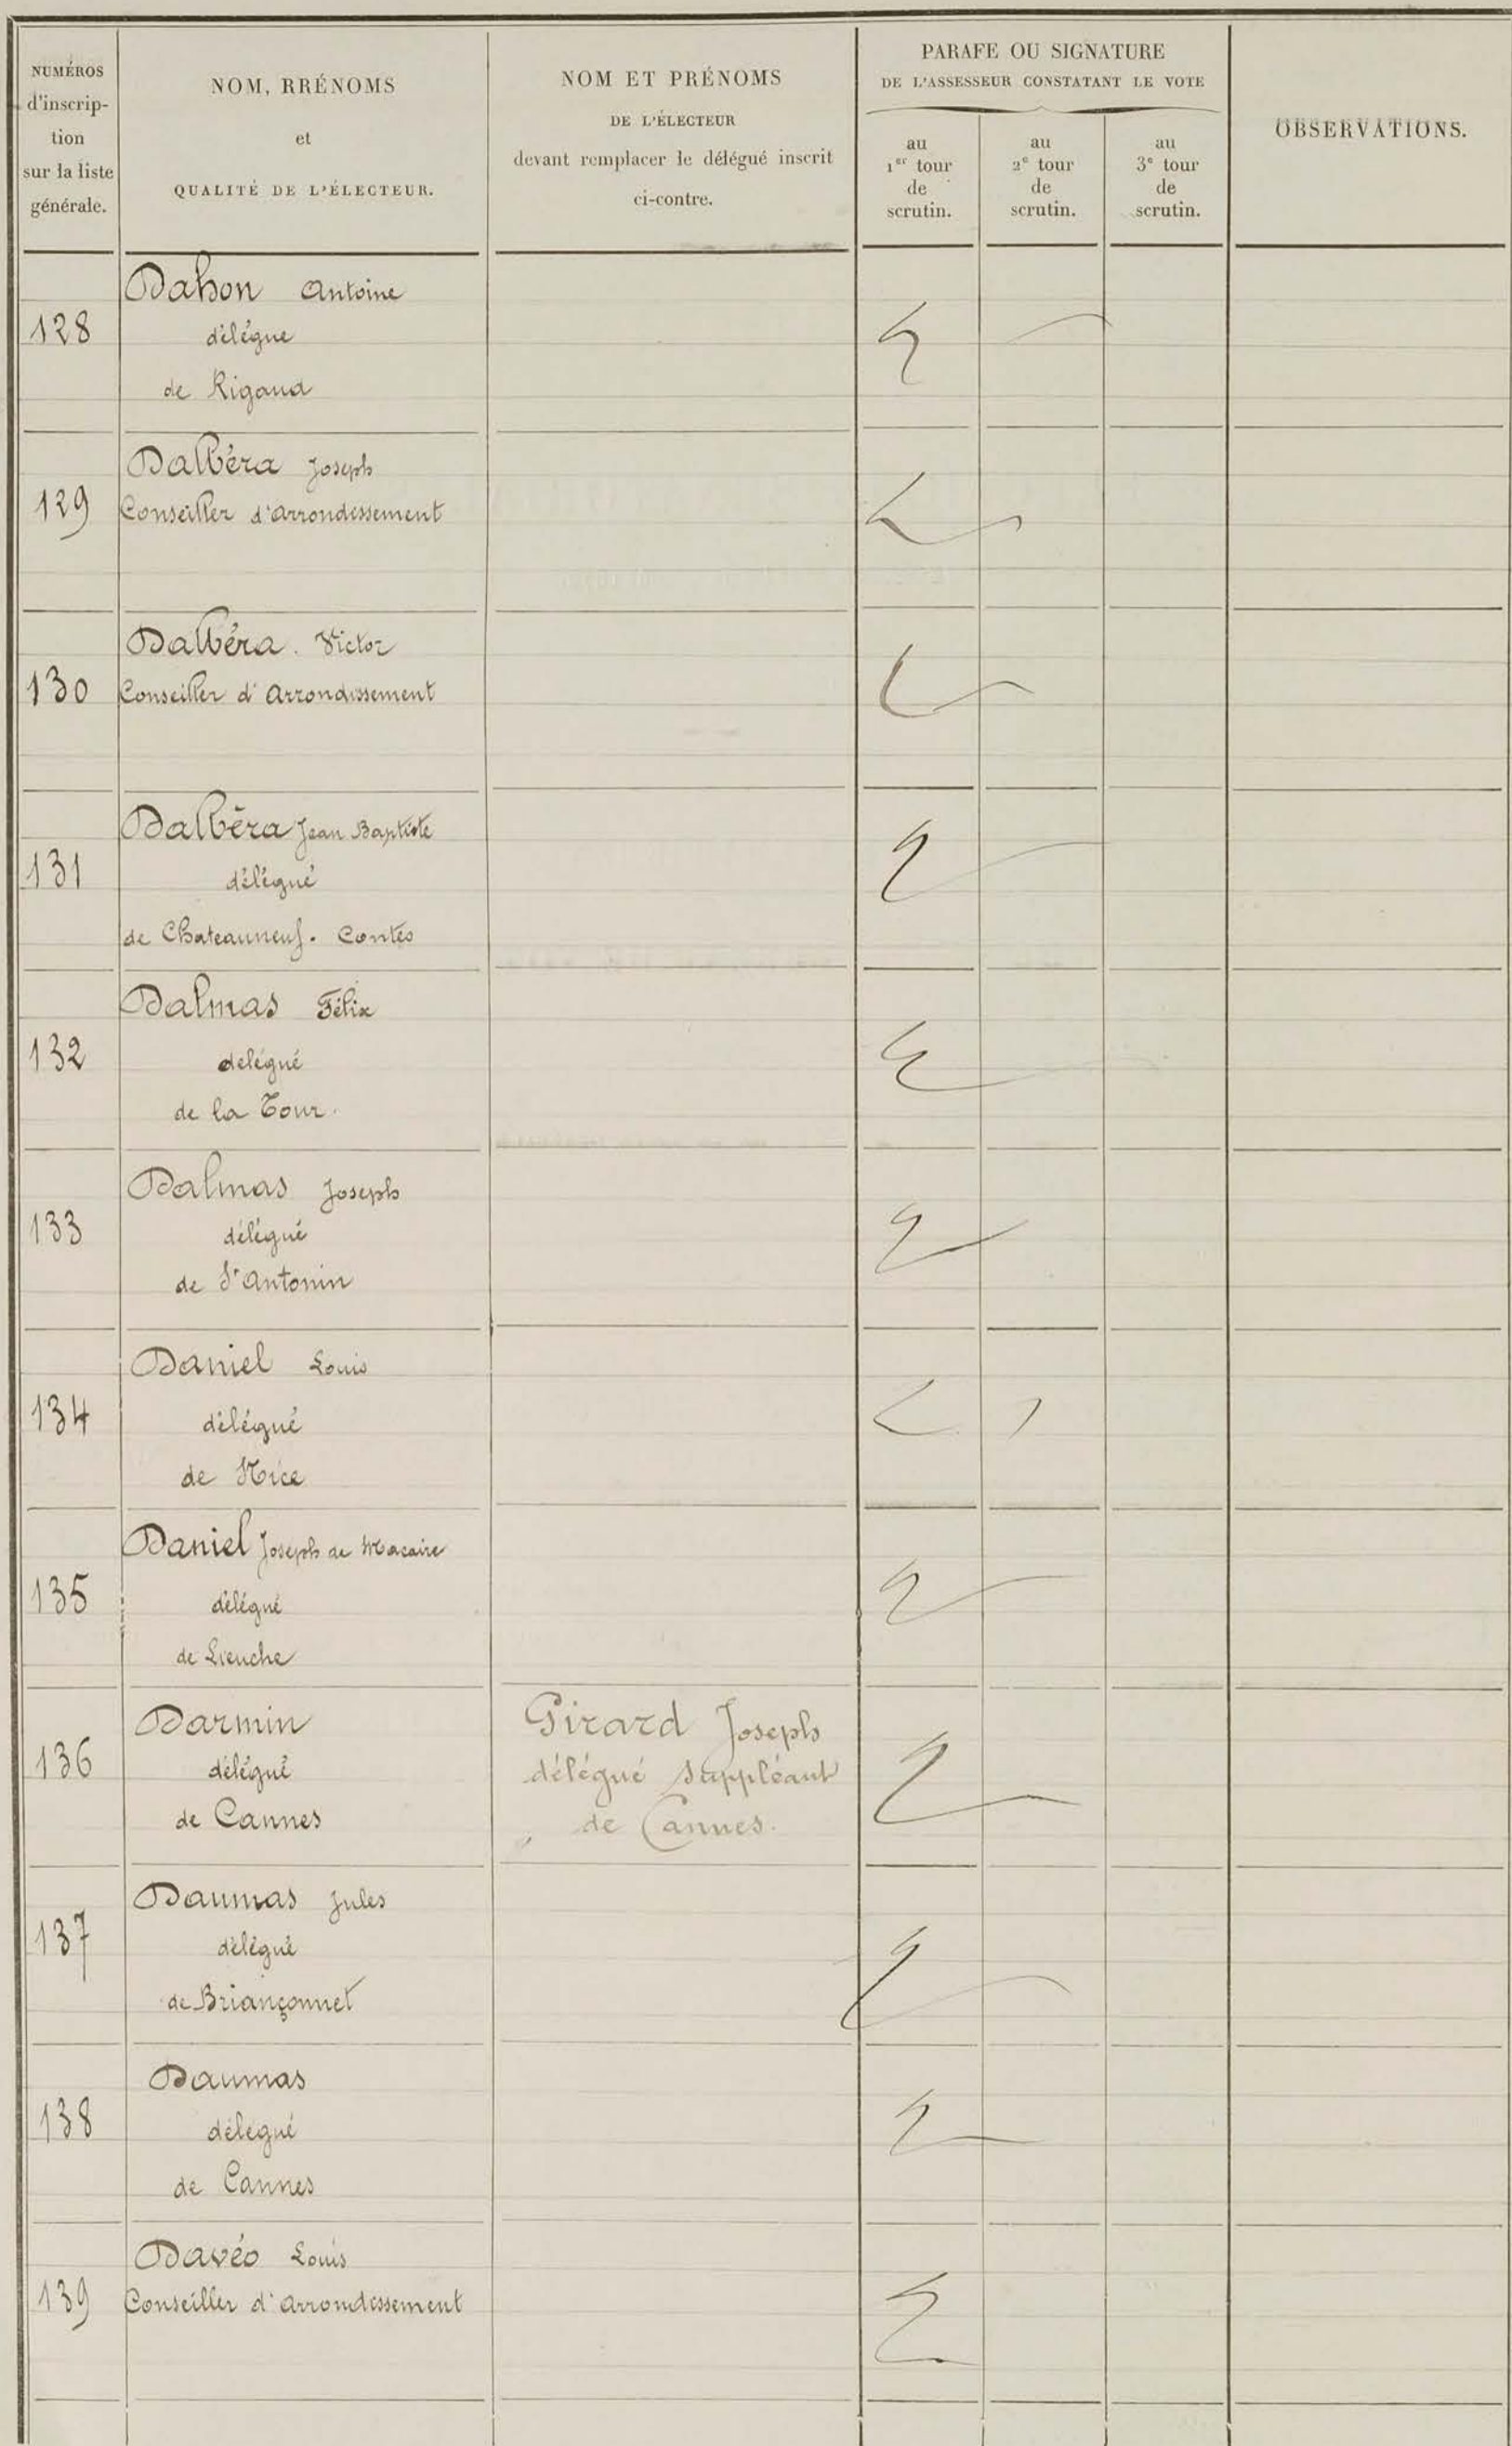 NUMÉROS
d'inscrip-
tion
sur la liste
générale.
NOM, RRÉNOMS
et
QUALITÉ DE L'ÉLECTEUR.
NOM ET PRÉNOMS
DE L'ÉLECTEUR
devant remplacer le délégué inscrit
ci-contre.
PARAFE OU SIGNATURE
DE L'ASSESSEUR CONSTATANT LE VOTE
au
1er tour
de
scrutin.
au
2e tour
de
scrutin.
au
3e tour
de
scrutin.
OBSERVATIONS.
Dahon Antoine
128 délégué
de Rigaud
Dalbéra Joseph
129 Conseiller d'arrondissement
Dalbéra. Victor
130 Conseiller d'Arrondissement
Dalbéra Jean Baptiste
131 délégué
de Chateauneuf. Contes
Dalmas Félix
132 delégué
de la Tour.
Dalmas Joseph
133 délégué
de St Antonin
Daniel Louis
134 délégué
de Nice
Daniel Joseph de Macaire
135 délégué
de Lieuche
Darmin Girard Joseph
136 délégué délégué suppléant
de Cannes de Cannes.
Daumas Jules
137 délégué
de Briançonnet
Daumas
138 délégué
de Cannes
Davéo Louis
139 Conseiller d'arrondissement